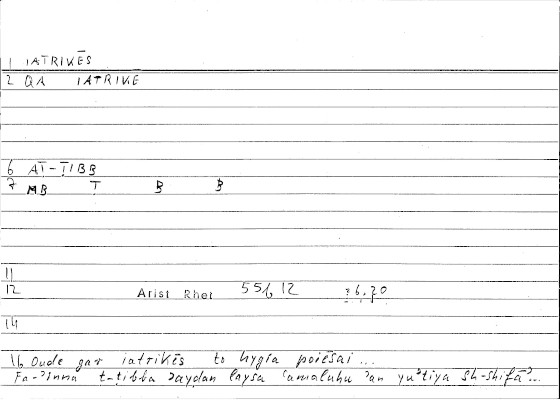 1 IATRIKĒS
2 QA IATRIKE
6 AṬ-ṬIBB
7 MB Ṭ B B
11
12 Arist Rhet 55b, 12
14
16 Oude gar iatrikēs to hygia poiēsai...
Fa-ʾinna ṭ-ṭibba ʾayḍan laysa ʿamaluhu ʾan yuʾtiya sh-shifāʾ...